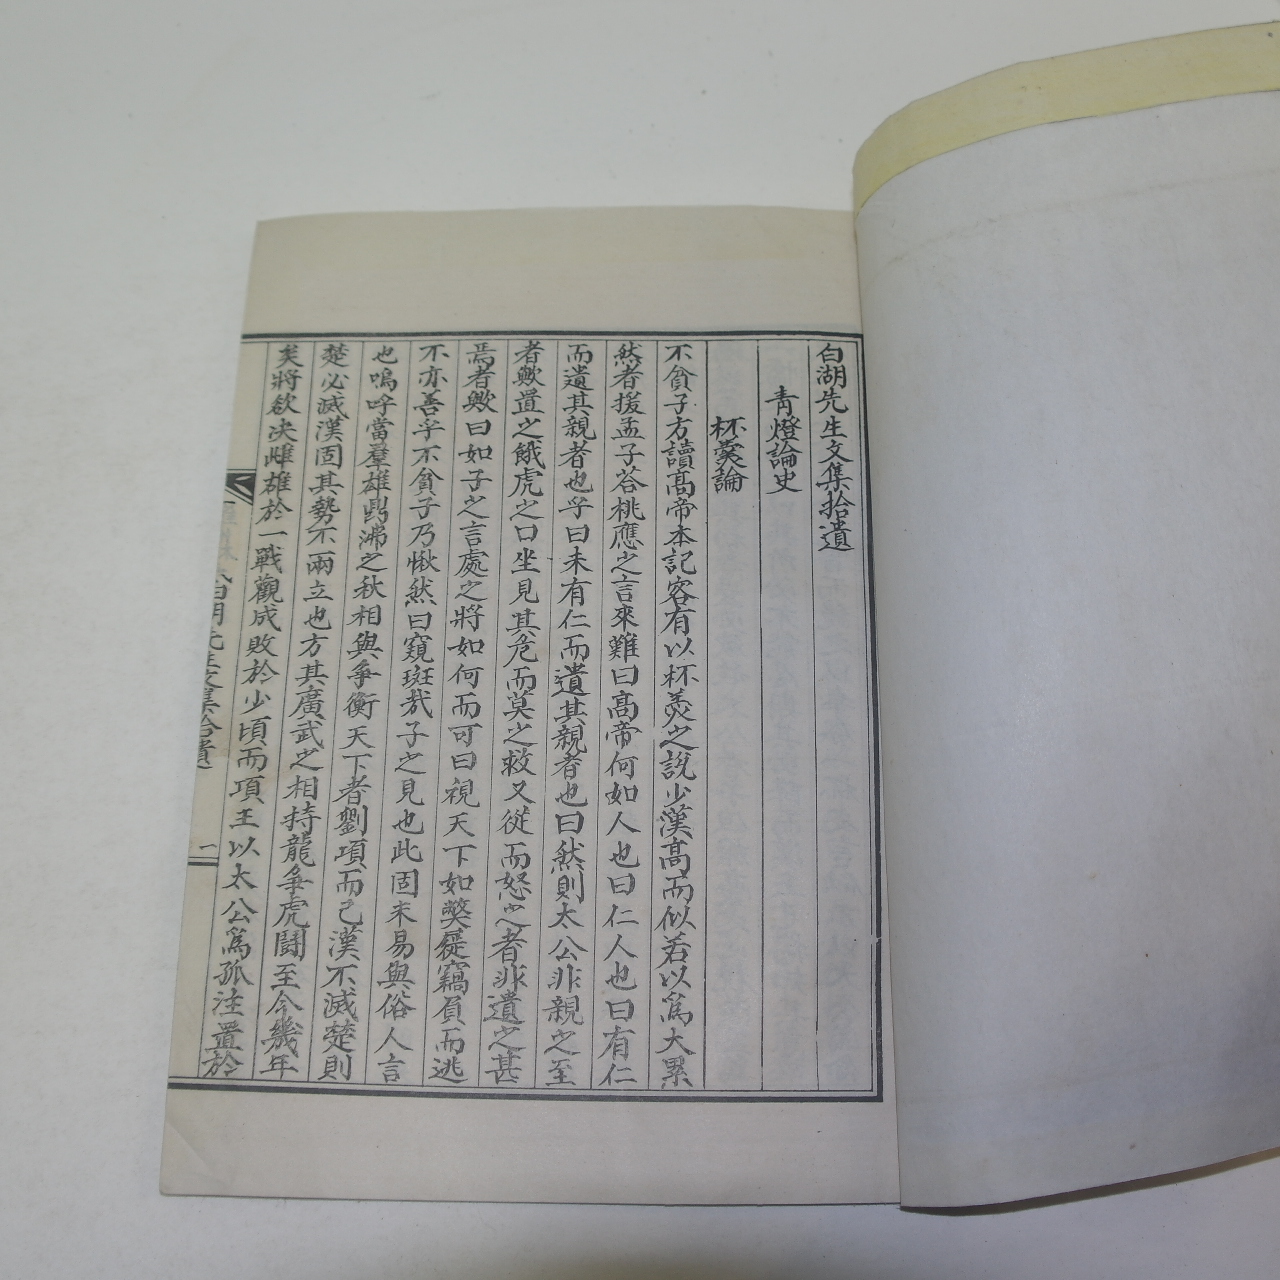 白湖先生文集拾遺
靑燈論史
杯羹論
不貧子方讀高帝本記客有以杯羹之說少漢高而似若以爲大累
然者援孟子荅桃應之言來難曰高帝何如人也曰仁人也曰有仁
而遺其親者也乎曰未有仁而遺其親者也曰然則太公非親之至
者歟置之餓虎之口坐見其危而莫之救又從而怒之者非遺之甚
焉者歟曰如子之言處之將如何而可曰視天下如獘屣竊負而逃
不亦善乎不貧子乃愀然曰窺斑哉子之見也此固未易與俗人言
也嗚呼當羣雄鼎沸之秋相與爭衡天下者劉項而已漢不滅楚則
楚必滅漢固其勢不兩立也方其廣武之相持龍爭虎鬪至今幾年
矣將欲决雌雄於一戰觀成敗於少頃而項王以太公爲孤注置於
白湖先生文集拾遺
一